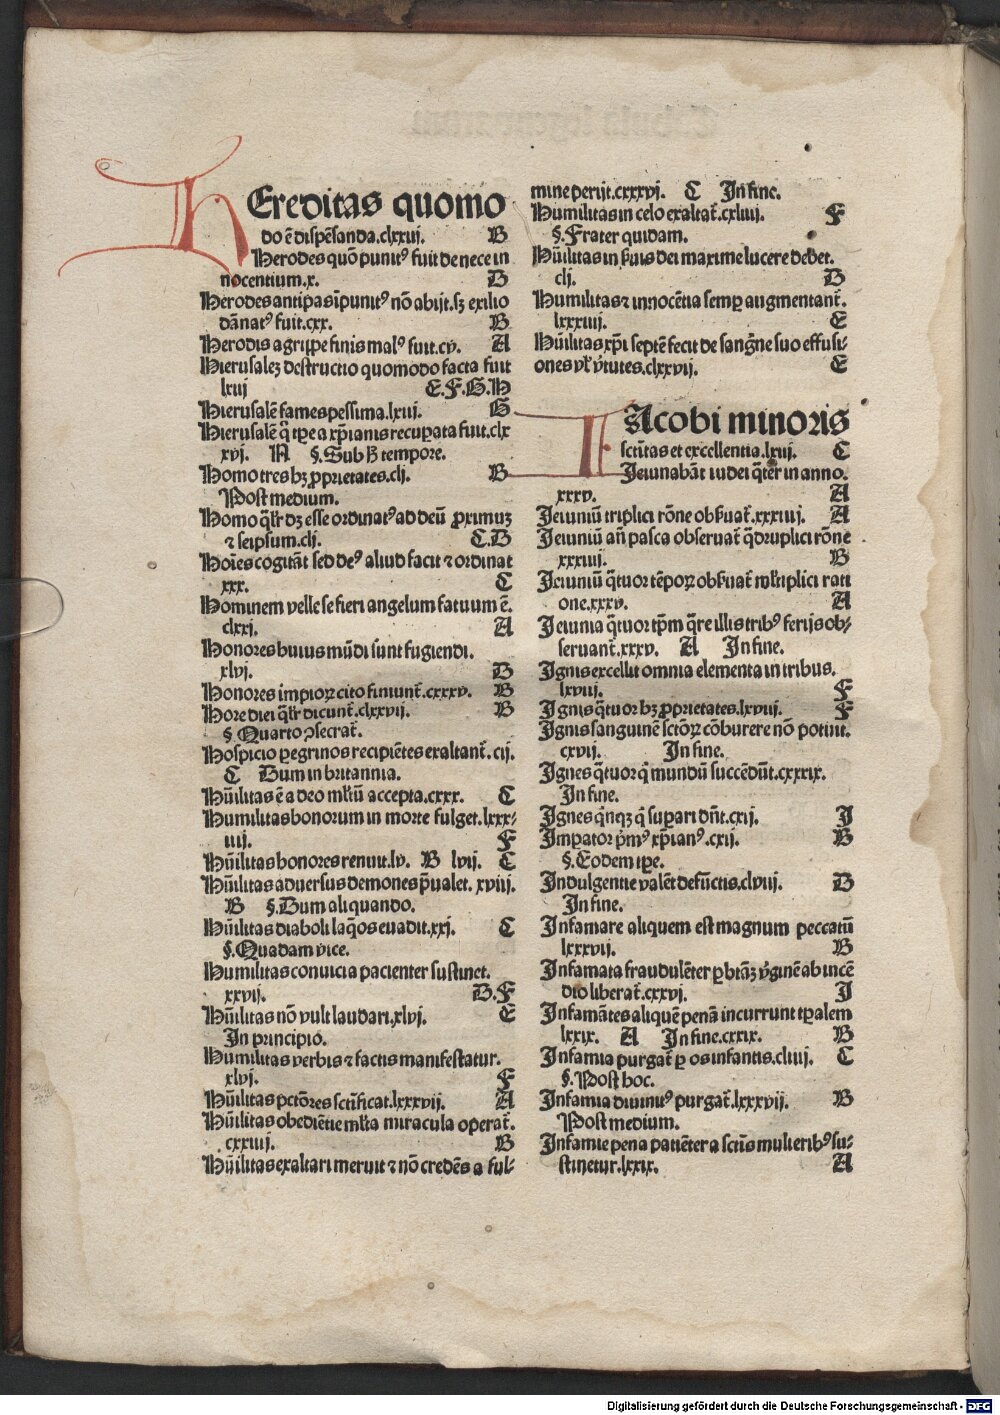 HEreditas quomo
do ē dispēsanda.clxxvj. B
Herodes quō punitꝰ fuit de nece in
nocentium.x. B
Herodes antipas īpunitꝰ nō abijt.sꝫ exilio
dānatꝰ fuit.cxx. B
Herodis agrippe finis malꝰ fuit.cv. A
Hierusalēꝫ destructio quomodo facta fuit
lxvij E.F.G.H
Hierusalē fames pessima.lxvij. G
Hierusalē q̄ tp̄e a xp̄ianis recuꝑata fuit.clx
xvj. N §.Sub ħ tempore.
Homo tres hꝫ ꝓprietates.clj. B
Post medium.
Homo q̄lr̄ dꝫ esse ordinatꝰ ad deū ꝓximuꝫ
⁊ seipsum.clj. C.D
Hoīes cogitāt sed deꝰ aliud facit ⁊ ordinat
xxx. C
Hominem velle se fieri angelum fatuum ē.
clxxj. A
Honores huius mūdi sunt fugiendi.
xlvj. D
Honores impioꝝ cito finiunt̄.cxxxv. B
Hore diei q̄lr̄ dicunt̄.clxxvij. B
§ Quarto ꝯsecrat̄.
Hospicio ꝑegrinos recipiētes exaltant̄.cij.
C Dum in britannia.
Hūilitas ē a deo ml̄tū accepta.cxxx. C
Humilitas bonorum in morte fulget.lxxx-
iiij. F
Hūilitas honores renuit.lv. B lvij. C
Hūilitas aduersus demones p̄ualet. xviij.
B §.Dum aliquando.
Hūilitas diaboli laq̄os euadit.xxj. C
§.Quadam vice.
Humilitas conuicia pacienter sustinet.
xxvij. D.F
Hūilitas nō vult laudari.xlvj. E
In principio.
Humilitas verbis ⁊ factis manifestatur.
xlvj. F
Hūilitas pctōres sctīficat.lxxxvij. A
Hūilitas obediētie ml̄ta miracula operat̄.
cxxiiij. B
Hūilitas exaltari meruit ⁊ nō credēs a ful-
mine perijt.cxxxvj. C In fine.
Humilitas in celo exaltat̄.cxliiij. F
§.Frater quidam.
Hūilitas in ẜuis dei maxime lucere debet.
clj. D
Humilitas ⁊ innocētia semꝑ augmentant̄.
lxxxiiij. E
Hūilitas xp̄i septē fecit de sanḡne suo effusi-
ones vl̄ v̓tutes.clxxvij. E
IAcobi minoris
sctītas et excellentia.lxvij. C
Jeiunabāt iudei q̄ter in anno.
xxxv. A
Jeiuniū triplici rōne obẜuat̄.xxxiiij. A
Jeiuniū an̄ pasca obseruat̄ q̄druplici rōne
xxxiiij. B
Jeiuniū q̄tuor tēpoꝝ obẜuat̄ ml̄tiplici rati
one.xxxv. A
Jeiunia q̄tuor tp̄m q̄re illis tribꝰ ferijs ob-
seruant̄.xxxv. A In fine.
Ignis excellit omnia elementa in tribus.
lxviij. F
Ignis q̄tuor hꝫ ꝓprietates.lxviij. F
Ignis sanguinē sctōꝝ cōburere nō potuit.
cxvij. In fine.
Ignes q̄tuor q̄ mundū succēdūt.cxxxix.
In fine.
Ignes q̄nqꝫ q̄ suꝑari dn̄t.cxij. J
Imꝑator p̄mꝰ xp̄ianꝰ.cxij. B
§.Eodem tp̄e.
Indulgentie valēt defūctis.clviij. D
In fine.
Infamare aliquem est magnum peccatū
lxxxvij. B
Infamata fraudulēter ꝑ btāꝫ v̓ginē ab incē
dio liberat̄.cxxvj. J
Infamātes aliquē penā incurrunt tꝑalem
lxxix. A In fine.cxxix. B
Infamia purgat̄ ꝑ os infantis.cliiij. C
§.Post hoc.
Infamia diuinitꝰ purgat̄.lxxxvij. B
Post medium.
Infamie pena patiēter a sctīs mulieribꝰ su-
stinetur.lxxix. A
Digitalisierung gefördert durch die Deutsche Forschungsgemeinschaft - DFG